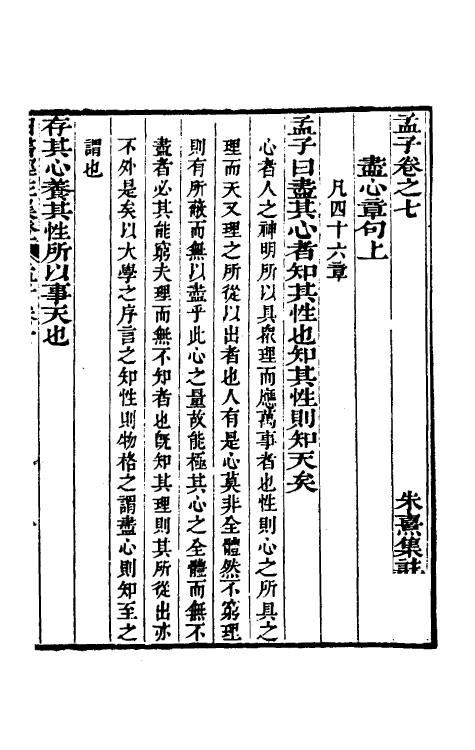 孟子卷之七 朱熹集註
盡心章句上
凡四十六章
孟子曰盡其心者知其性也知其性則知天矣
心者人之神明所以具衆理而應萬事者也性則心之所具之
理而天又理之所從以出者也人有是心莫非全體然不窮理
則有所蔽而無以盡乎此心之量故能極其心之全體而無不
盡者必其能窮夫理而無不知者也旣知其理則其所從出亦
不外是矣以大學之序言之知性則物格之謂盡心則知至之
謂也
存其心養其性所以事天也